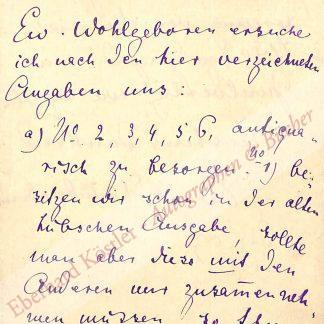 Ew. Wohlgeboren ersuche
ich nach den hier verzeichneten
Angaben uns
a) No 2, 3, 4, 5, 6, antiqua-
risch zu besorgen. No 1) be-
sitzen wir schon in der alten
hübschen Ausgabe, sollte
man aber diese mit den
Anderen nur zusammenneh-
men müssen, so
Eberhard Köstler Autographen & Bücher